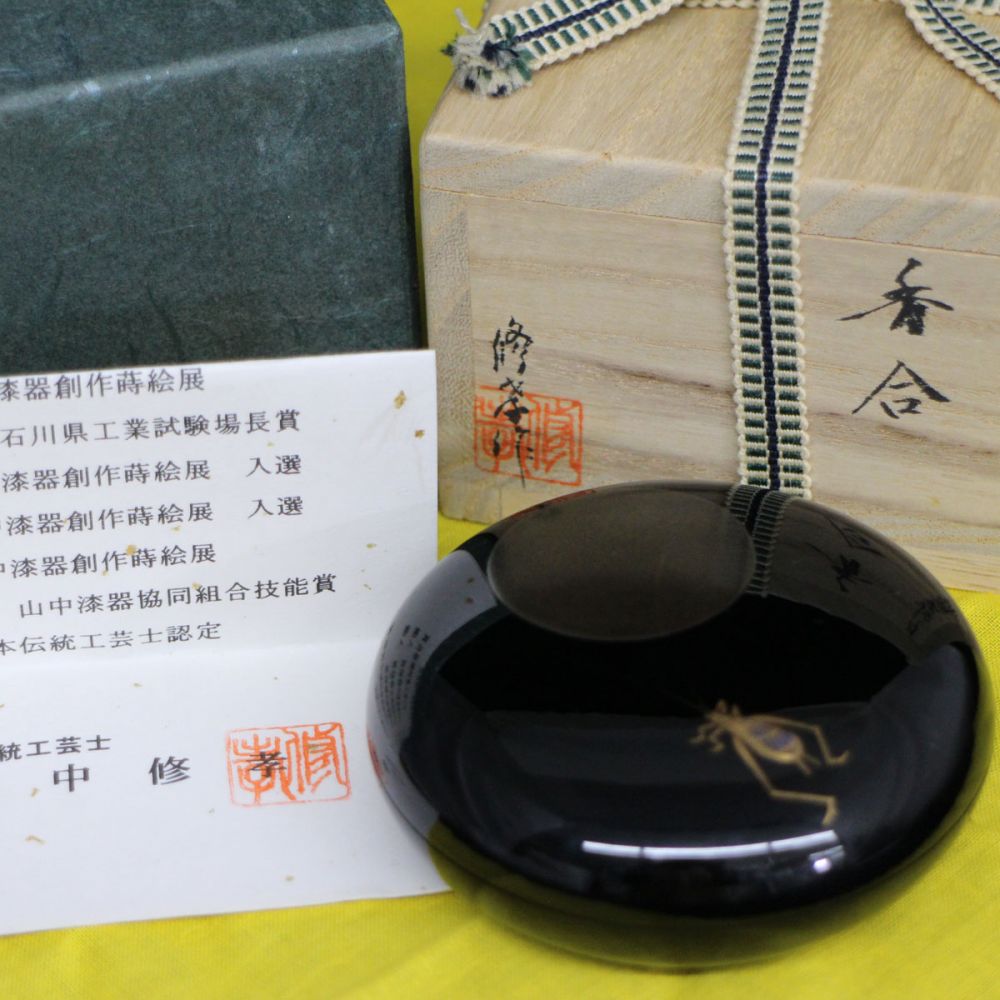 漆器創作蒔絵展
石川県工業試験場長賞
漆器創作蒔絵展 入選
中漆器創作蒔絵展 入選
中漆器創作蒔絵展
山中漆器協同組合技能賞
本伝統工芸士認定
統工芸士
中 修 孝
修孝
香合
修孝作
修孝